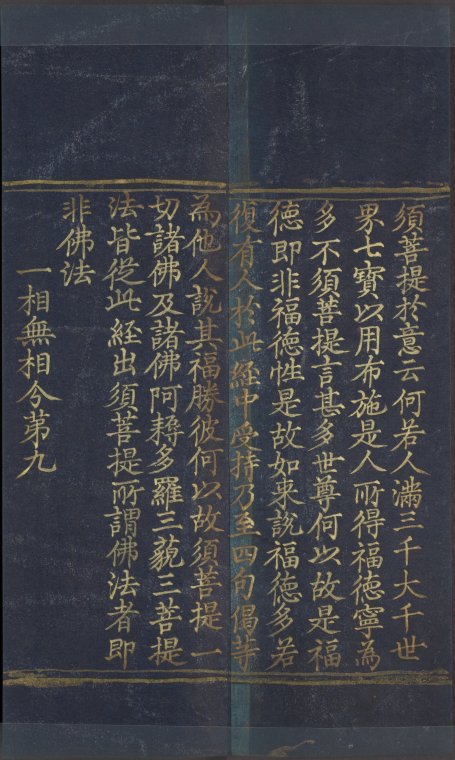 須菩提於意云何若人滿三千大千世
界七寶以用布施是人所得福德寧為
多不須菩提言甚多世尊何以故是福
德即非福德性是故如来說福德多若
復有人於此經中受持乃至四句偈等
為他人說其福勝彼何以故須菩提一
切諸佛及諸佛阿耨多羅三藐三菩提
法皆從此經出須菩提所謂佛法者即
非佛法
一相無相分第九